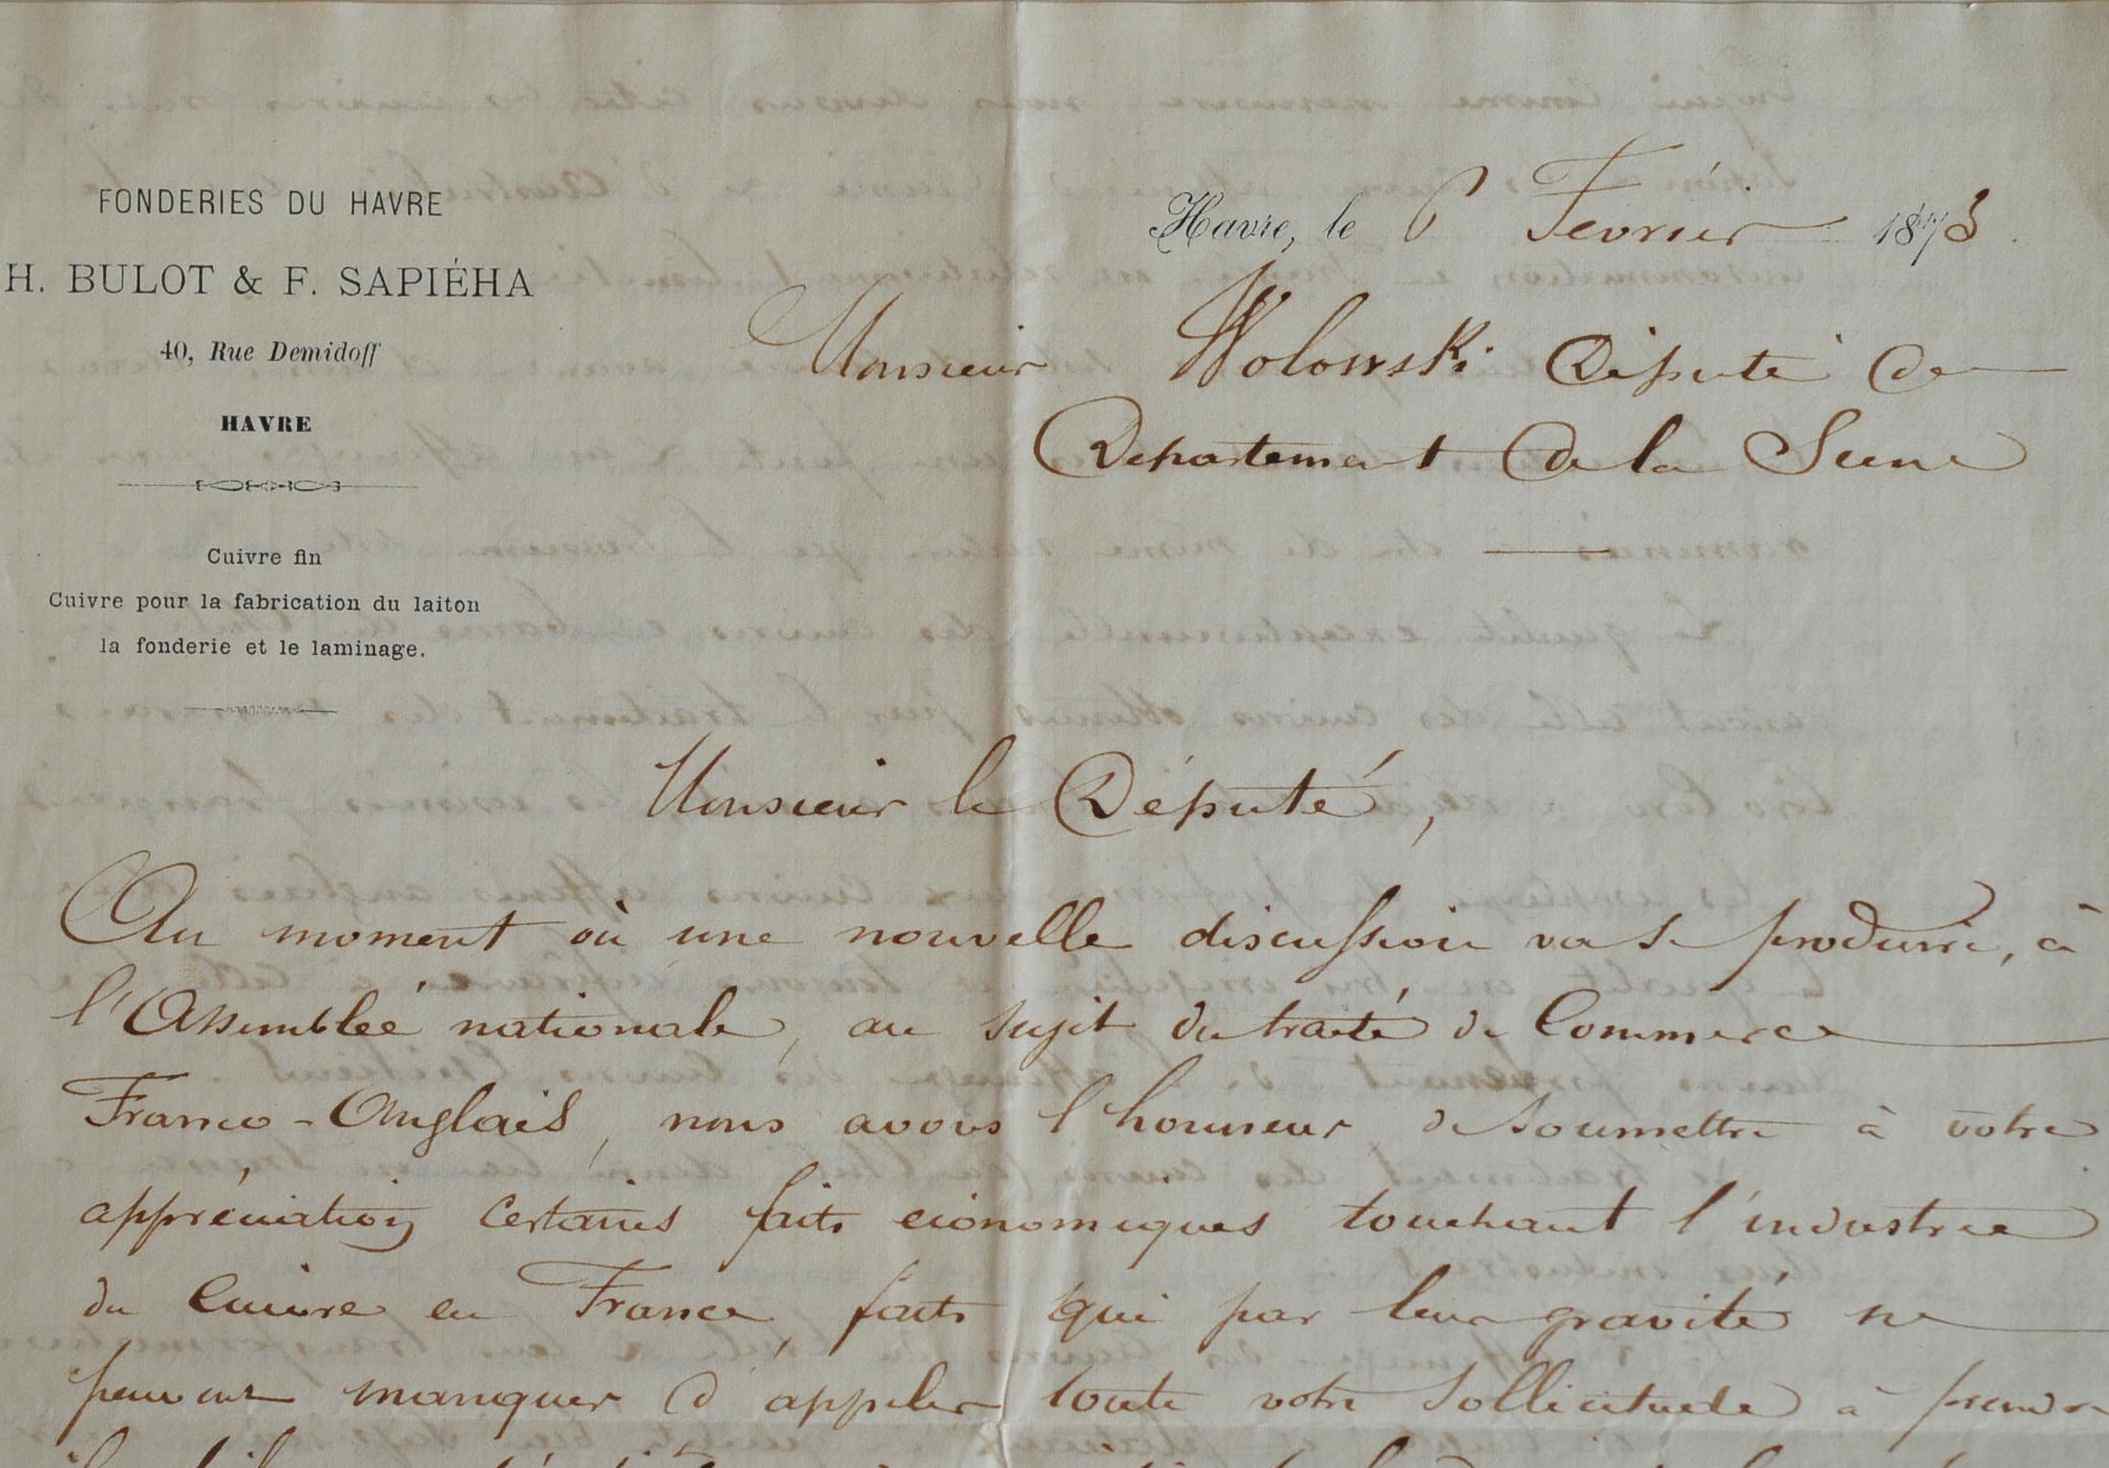 FONDERIES DU HAVRE
H. BULOT & F. SAPIÉHA
40, Rue Demidoff
HAVRE
Cuivre fin
Cuivre pour la fabrication du laiton
la fonderie et le laminage.
Havre, le 6 Fevrier 1873.
Monsieur Wolowski Député de
Departement de la Seine
Monsieur le Député,
Au moment où une nouvelle discussion va se produire, à
l'Assemblée nationale, au sujet du traité de Commerce
Franco-Anglais, nous avons l'honneur de soumettre à votre
appréciation certains faits economiques touchant l'industrie
du Cuivre en France, faits qui par leur gravité ne
peuvent manquer d'appeler toute votre sollicitude à prendre